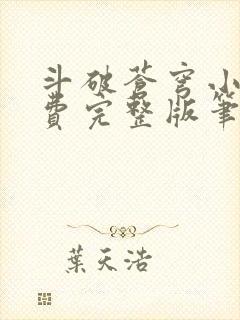 斗破苍穹小
費完整版筆
葉天浩